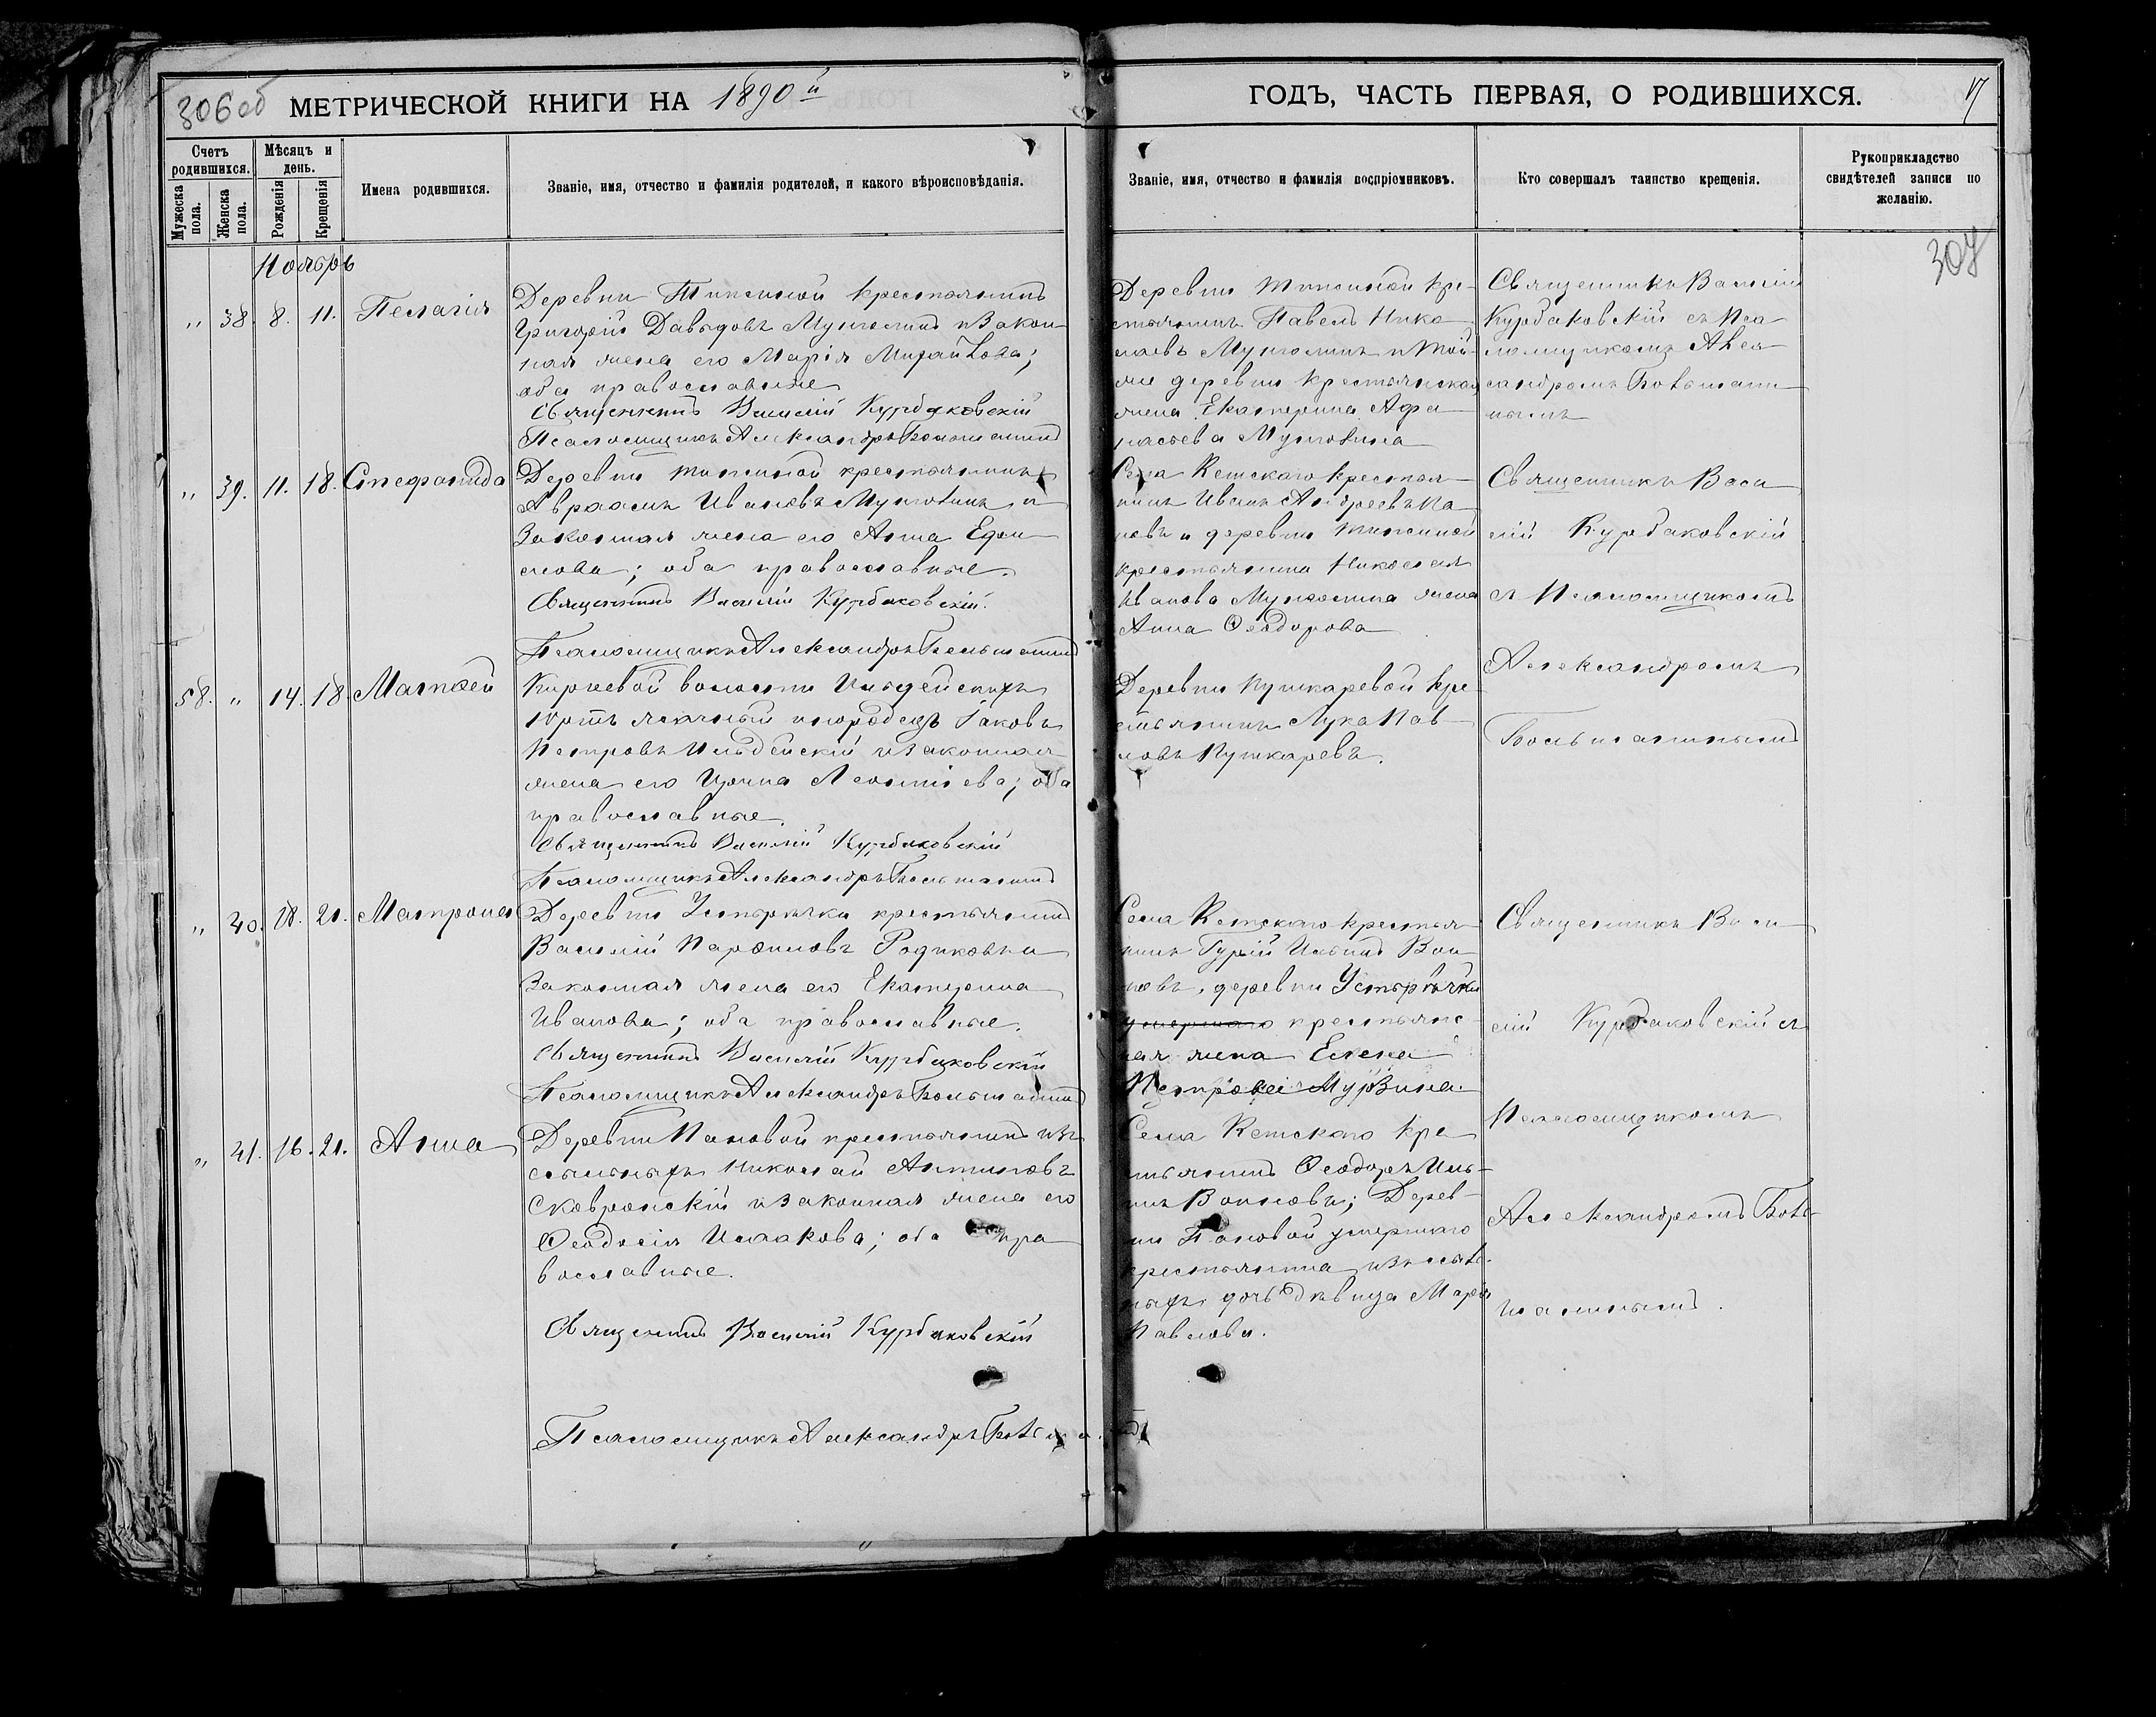 306 об
МЕТРИЧЕСКОЙ КНИГИ НА 1890й
ГОДЪ, ЧАСТЬ ПЕРВАЯ, О РОДИВШИХСЯ.
17
Счетъ родившихся.
Мѣсяцъ и день.
Мужеска пола.
Женска пола.
Рожденія
Крещенія
Имена родившихся.
Званіе, имя, отчество и фамилія родителей, и какого вѣроисповѣданія.
Званіе, имя, отчество и фамилія воспріемниковъ.
Кто совершалъ таинство крещенія.
Рукоприкладство свидѣтелей записи по желанію.
307
Ноябрь
" 38. 8. 11. Пелагія
Деревни Типсиной крестьянинъ
Григорій Давыдовъ Мунголинъ и Закон-
ная жена его Марія Михайлова;
оба православные
Священникъ Василій Курбаковскій
Псаломщикъ Александръ Большанинъ
Деревни Типсиной кре-
стьянинъ Павелъ Нико-
лаевъ Мунголинъ и той-
же деревни крестьянская
жена Екатерина Афа-
насьева Мунголина
Священникъ Василій
Курбаковскій съ Пса-
ломщикомъ Алек-
сандромъ Большани-
нымъ
" 39. 11. 18. Стефанида
Деревни Типсиной крестьянинъ
Авраамъ Ивановъ Мунголинъ и
Законная жена его Анна Ефи-
мова; оба православные.
Священникъ Василій Курбаковскій.
Псаломщикъ Александръ Большанинъ
Села Кетскаго крестья-
нинъ Иванъ Андреевъ Па-
новъ и деревни Типсиной
крестьянина Николая
Иванова Мунголина жена
Анна Ѳеодорова
Священникъ Васи-
лій Курбаковскій
съ Псаломщикомъ
Александромъ
Большанинымъ
58. " 14. 18. Матѳей
волости
ясачный инородецъ Іаковъ
Петровъ и законная
жена его Ирина Леонтіева; оба
православные.
Священникъ Василій Курбаковскій
Псаломщикъ Александръ Большанинъ
Деревни Пушкаревой кре-
стьянинъ Лука Пав-
ловъ Пушкаревъ.
" 40. 18. 21. Матрона
Деревни Устьрѣчки крестьянинъ
Василій Парѳиловъ Родиковъ и
Законная жена его Екатерина
Иванова; оба православные.
Священникъ Василій Курбаковскій
Псаломщикъ Александръ Большанинъ
Села Кетскаго крестья-
нинъ Гурій Ильинъ Вои-
новъ, деревни Устьрѣчки
умершаго крестьянс-
кая жена Елена
Петрова Мурзина.
Священникъ Васи-
лій Курбаковскій съ
Псаломщикомъ
Александромъ Боль-
шанинымъ.
" 41. 16. 21. Анна
Деревни Пановой крестьянинъ изъ
сыльныхъ Николай Антиповъ
Сковронскій и Законная жена его
Ѳеодосія Исаакова; оба пра-
вославные.
Священникъ Василій Курбаковскій
Псаломщикъ Александръ Большанинъ
Села Кетскаго кре-
стьянинъ Ѳеодоръ Иль-
инъ Воиновъ; Дерев-
ни Пановой умершаго
крестьянина изъ сыль-
ныхъ дочь дѣвица Марія
Павлова.